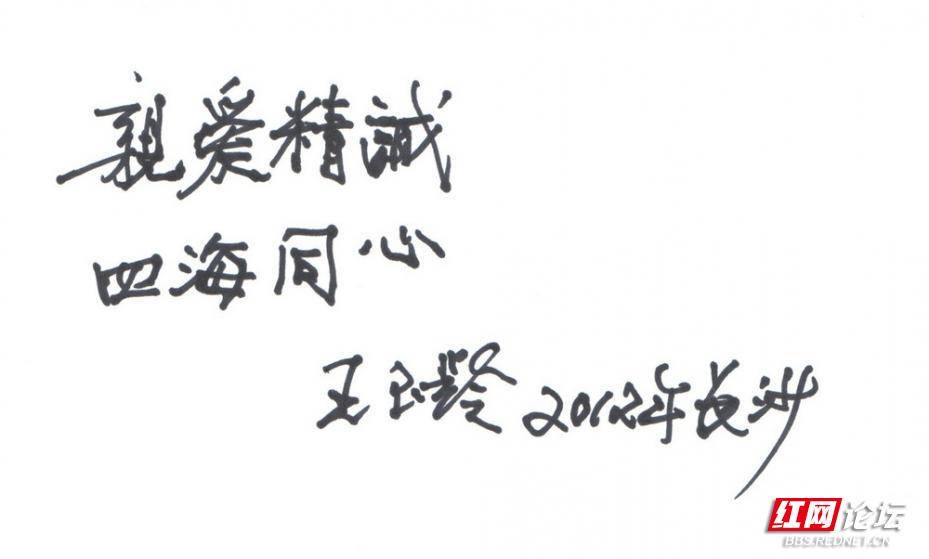 親爱精誠
四海同心
王玉龄 2012年长沙
红网论坛
BBS.REDNET.CN